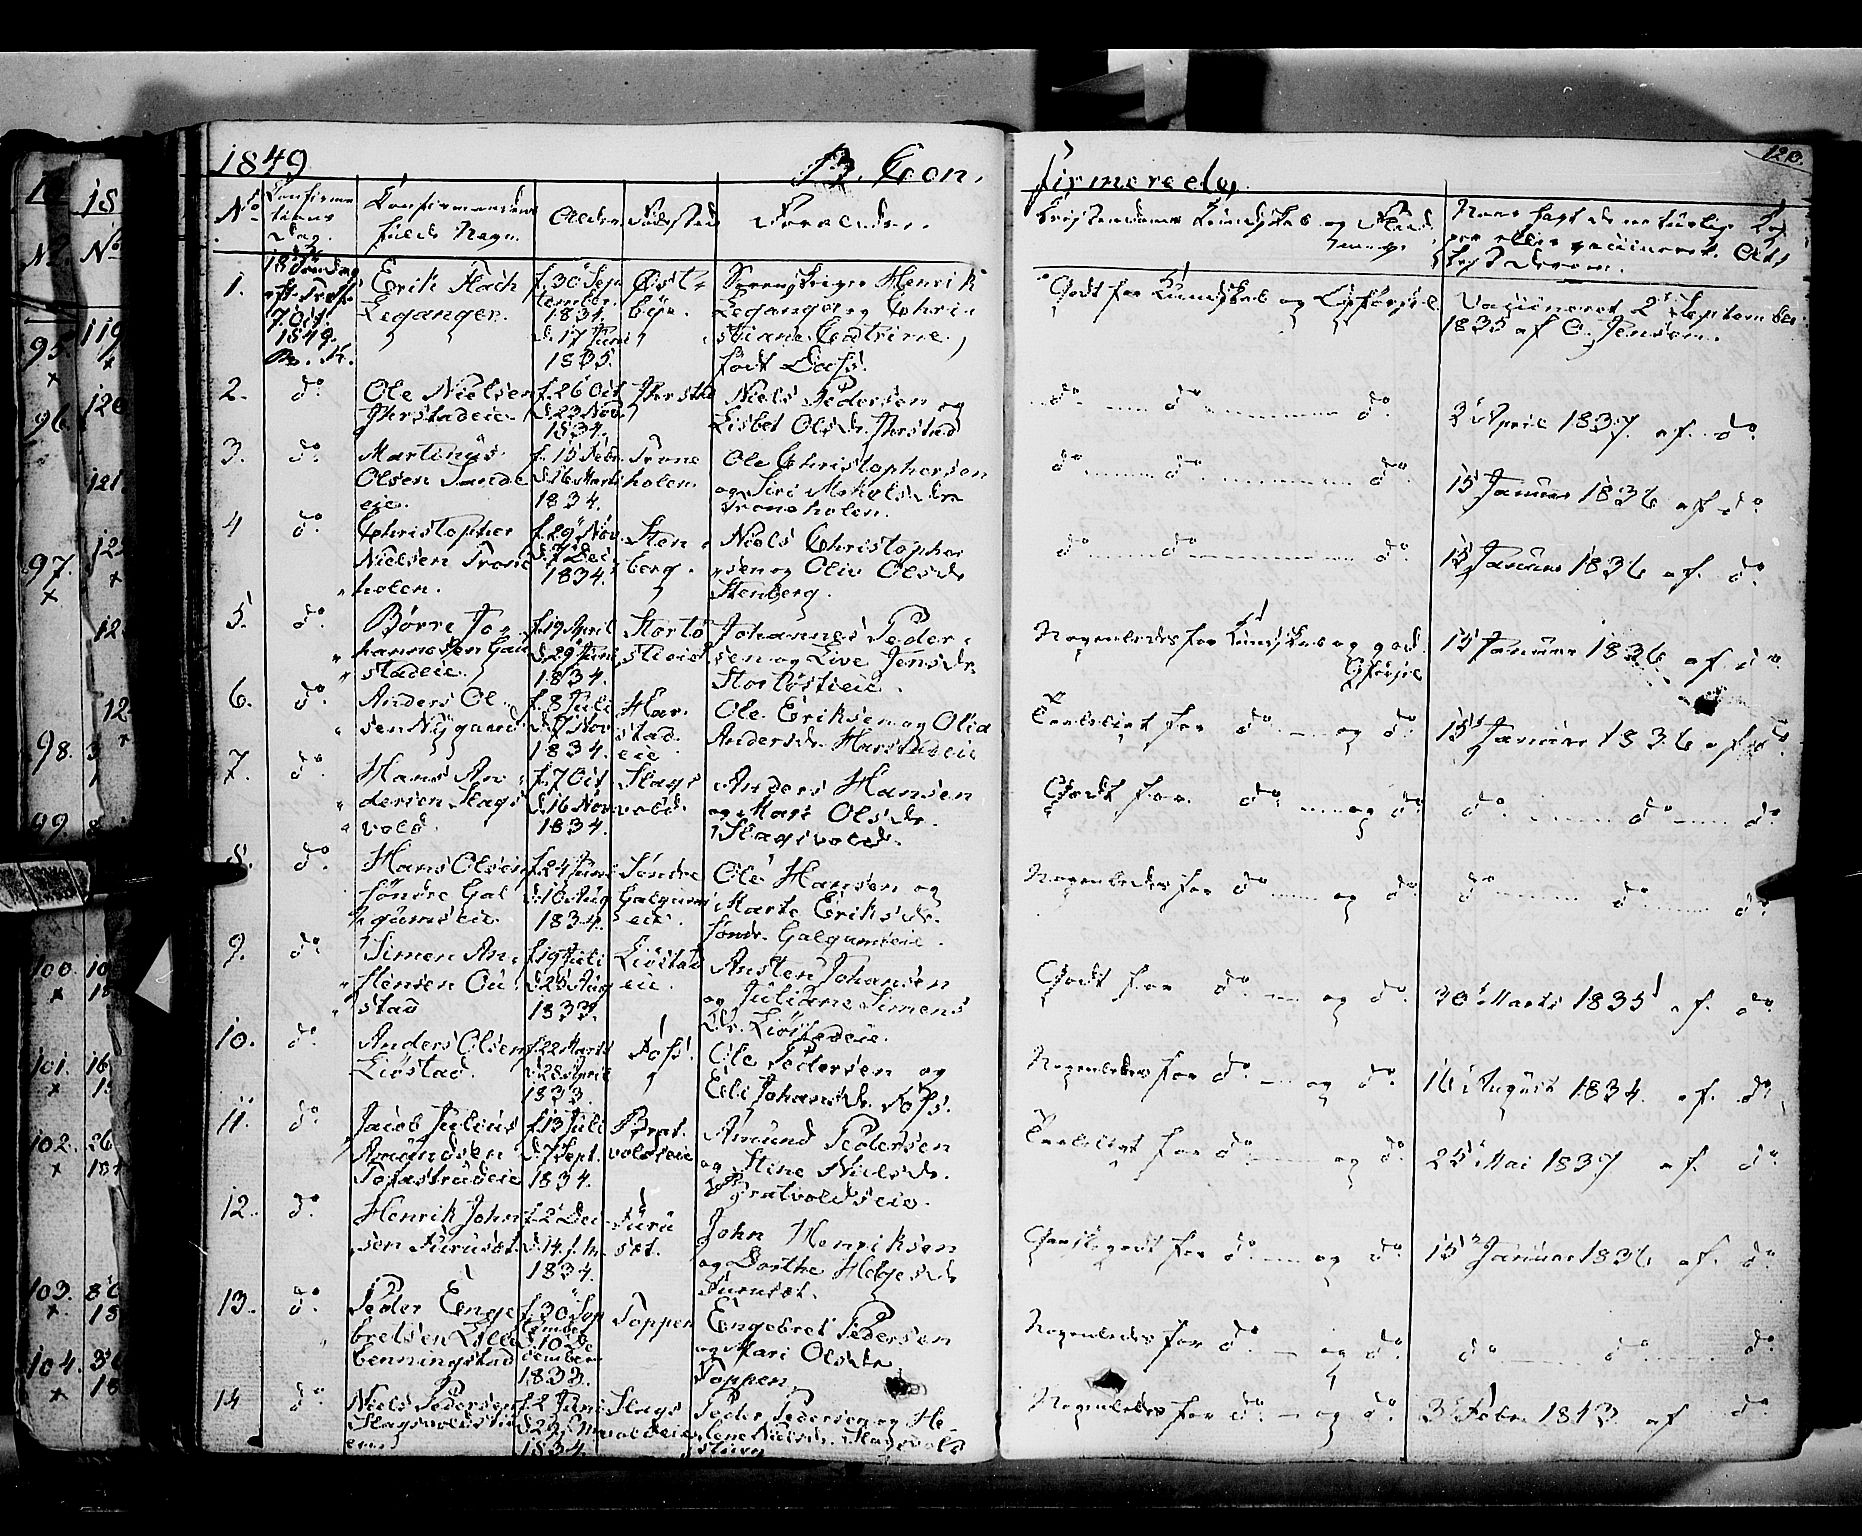 1849
B. Con.
firmerede.
120.
No
Confirma
tions
Dag.
Confirmandens
fulde Navn.
Alder
Fødested
Forældre.
Christendoms Kundskab og Flid
Have havt de naturlige Kop
per eller vaccineret. Att
1.
18de Søndag
eft. Tref.
7 Oct.
1849.
Erik Hach
Leganger.
f. 30 Sep
tember.
1834.
d. 17 Juni
1835.
Øst-
bye.
Henrik
Leganger og Chri
stiane Cathrine
født Dass.
Godt for Kundskab og
Vaccineret 2 September
1835 af O. Jensen.
2.
do
Ole Nielsen
Jherstadeie.
f. 26 Oct
d. 23 Nov.
1834.
Jhersta
Niels Pedersen og
Lisbet Olsdr. Jherstad
do do do
3 April 1837. af do
3.
do
Martinus
Olsen Sande
eie.
f. 15 Febr.
d. 16 Marts
1834.
Trone
holen.
Ole Christophersen
og Siri
Troneholen.
do do do
15 Januar 1836 af do
4
do
Christopher
Nielsen Trone
holen.
f. 29 Nov.
d. 7 Dec
1834.
Sten
berg.
Niels Christopher
sen og Oliv Olsdr
Stenberg.
do do do
15 Januar 1836 af. do
5.
do
Børre Jo
hannesen Gau
stadeie.
f. 19 April
d. 29 Juni
1834.
Stortø
stieie
Johannes Peder
sen og Live Jensdr.
Stortøstieie.
Nogenledes for Kundskab og god
15 Januar 1836 af do
6.
do
Anders Ol
sen Nygaard
f. 8 Juli
d. 7 Nov
1834.
Har
stad
eie
Ole Eriksen og Olia
Andersdr. Harstadeie
Taaleligt for do og do
15 Januar 1836 af do
7.
do
Hans An
dersen Slags
vold.
f. 7 Oct
d. 16 Nov
1834.
Slags
vold.
Anders Hansen
og Mari Olsdr.
Slagsvold.
Godt for do og do
do do do
8.
do
Hans Olsen
Søndre Gal
gumseie.
f. 24 Juni
d. 10 Aug
1834.
Søndre
Galgum
eie.
Ole Hansen og
Marte Eriksdr.
Søndr. Galgumseie.
Nogenledes for do og do
do do do
9.
do
Simen An
stensen Ou
stad
f. 19 Juli
d. 25 Aug
1833.
Liøstad
eie.
Ansten Johansen
og Juliane Simens
dr. Liøstadeie.
Godt for do og do
30 Marts 1835 af. do
10.
do
Anders Olsen
Liøstad.
f. 22 Marts
d. 28 April
1833.
Foss.
Ole Pedersen og
Eli Johansdr. Foss.
Nogenledes for do og do
16 August 1834. af. do
11.
do
Jacob Julius
Amundsen
Tofastrudeie
f. 13 Juli
d. 7 Sept.
1834.
Brat
voldseie
Amund Pedersen
og Stine Nielsdr.
Bratvoldseie.
Taaleligt for do og do
25 Mai 1837 af. do
12.
do
Henrik John
sen Furuset.
f. 2 Dec
d. 14. s. m.
1834.
Furu
set.
John Henriksen
og Dorthe Helgesdr
Furuset.
Ganske godt for do og do
15 Januar 1836 af. do
13.
do
Peder Enge
bretsen Lille
benningstad
f. 30 Sep
tember
d. 10 De
cember
1833.
Toppen
Engebret Pedersen
og Mari Olsdr
Toppen.
Nogenledes for do og do
do do do
14
do
Niels Pedersen
f. 2 Juni
1834.
Slags
voldeie
Peder Pedersen og He
lene Nielsdr. Slagsvold
Nogenledes for do og do
3 Febr. 1843 af do
95.
96.
97.
98.
99
100.
101.
102.
103.
104.